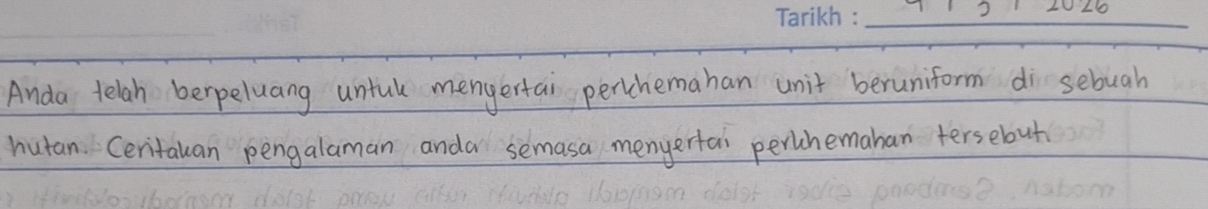 Tarikh : 9 / 3 / 2026
Anda telah berpeluang untuk mengertai perkhemahan unit beruniform di sebuah
hutan. Ceritakan pengalaman anda semasa menyertai perkhemahan tersebut.